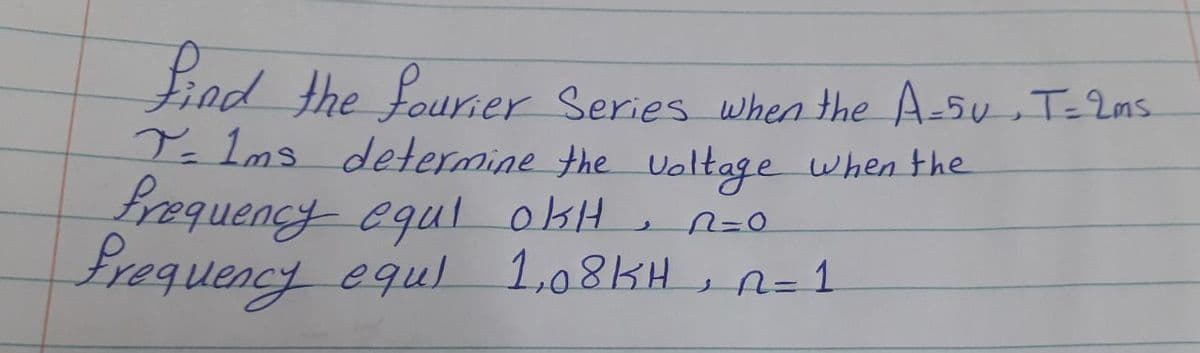 find the fourier Series when the A=5v, T=2ms
τ=1ms determine the voltage when the
frequency equl 0KH, n=0
frequency equl 1,08KH, n=1